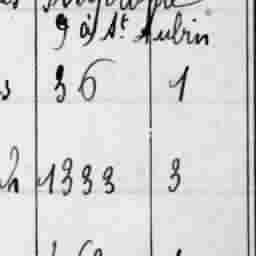 9 à St Aubin
36 1
1333 3